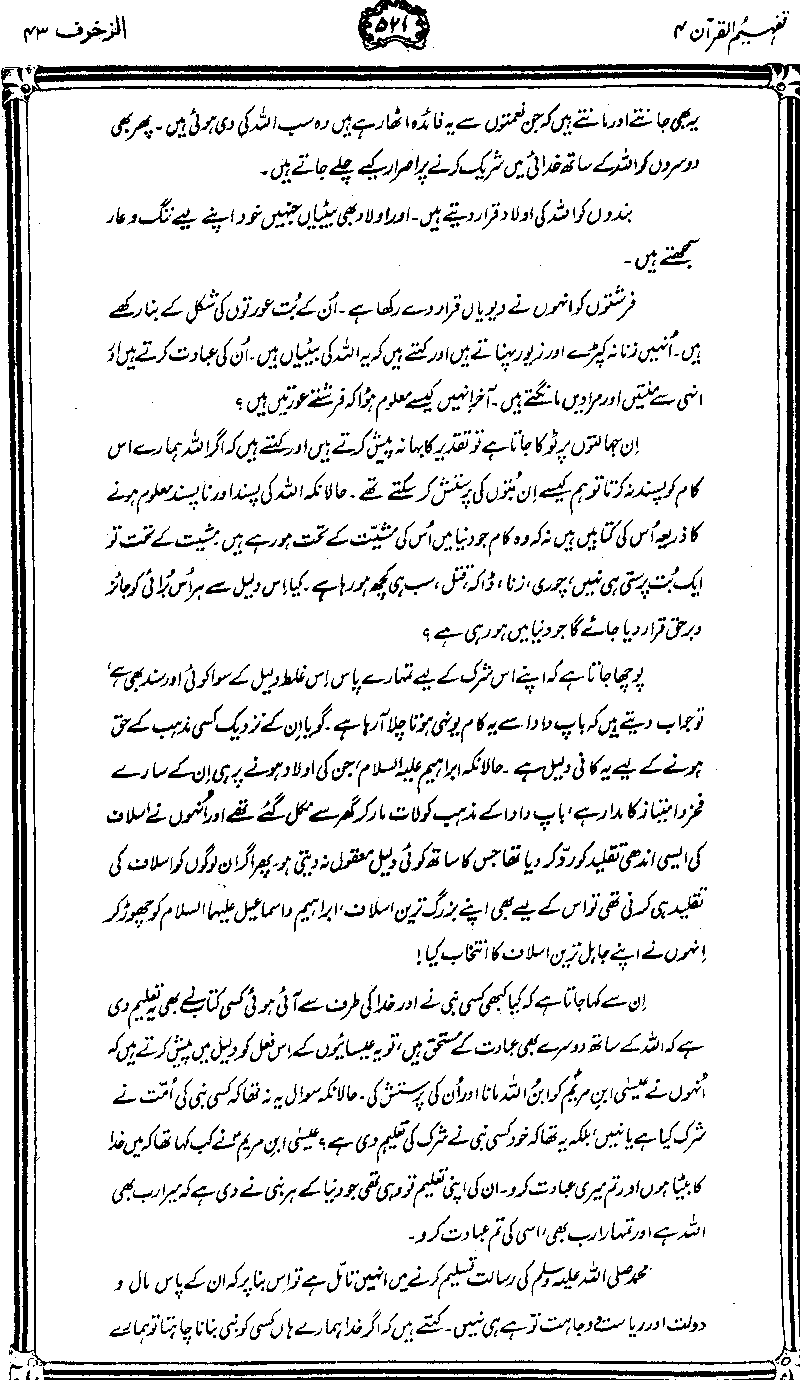 تفہیم القرآن ۴
۵۲۱
الزخرف ۴۳
یہ بھی جانتے اور مانتے ہیں کہ جن نعمتوں سے یہ فائدہ اٹھا رہے ہیں وہ سب اللہ کی دی ہوئی ہیں۔ پھر بھی
دوسروں کو اللہ کے ساتھ خدائی میں شریک کرنے پر اصرار کیے چلے جاتے ہیں۔
بندوں کو اللہ کی اولاد قرار دیتے ہیں۔ اور اولاد بھی بیٹیاں جنہیں خود اپنے لیے ننگ و عار
سمجھتے ہیں۔
فرشتوں کو انہوں نے دیویاں قرار دے رکھا ہے۔ اُن کے بُت عورتوں کی شکل کے بنا رکھے
ہیں۔ اُنہیں زنانہ کپڑے اور زیور پہناتے ہیں اور کہتے ہیں کہ یہ اللہ کی بیٹیاں ہیں۔ اُن کی عبادت کرتے ہیں اور
انہی سے منتیں اور مرادیں مانگتے ہیں۔ آخر اِنہیں کیسے معلوم ہؤا کہ فرشتے عورتیں ہیں؟
اِن جہالتوں پر ٹوکا جاتا ہے تو تقدیر کا بہانہ پیش کرتے ہیں اور کہتے ہیں کہ اگر اللہ ہمارے اس
کام کو پسند نہ کرتا تو ہم کیسے اِن بُتوں کی پرستش کر سکتے تھے۔ حالانکہ اللہ کی پسند اور ناپسند معلوم ہونے
کا ذریعہ اُس کی کتابیں ہیں نہ کہ وہ کام جو دنیا میں اُس کی مشیّت کے تحت ہو رہے ہیں۔ مشیت کے تحت تو
ایک بُت پرستی ہی نہیں، چوری، زنا، ڈاکہ، قتل، سب ہی کچھ ہو رہا ہے۔ کیا اِس دلیل سے ہر اُس بُرائی کو جائز
و برحق قرار دیا جائے گا جو دنیا میں ہو رہی ہے؟
پوچھا جاتا ہے کہ اپنے اس شرک کے لیے تمہارے پاس اِس غلط دلیل کے سوا کوئی اور سند بھی ہے،
تو جواب دیتے ہیں کہ باپ دادا سے یہ کام یونہی ہوتا چلا آرہا ہے۔ گویا اِن کے نزدیک کسی مذہب کے حق
ہونے کے لیے یہ کافی دلیل ہے۔ حالانکہ ابراہیم علیہ السلام، جن کی اولاد ہونے پر ہی اِن کے سارے
فخر و امتیاز کا مدار ہے، باپ دادا کے مذہب کو لات مار کر گھر سے نکل گئے تھے اور اُنہوں نے اسلاف
کی ایسی اندھی تقلید کو رد کر دیا تھا جس کا ساتھ کوئی دلیل معقول نہ دیتی ہو۔ پھر اگر ان لوگوں کو اسلاف کی
تقلید ہی کرنی تھی تو اس کے لیے بھی اپنے بزرگ ترین اسلاف، ابراہیم و اسماعیل علیہما السلام کو چھوڑ کر
اِنہوں نے اپنے جاہل ترین اسلاف کا انتخاب کیا!
اِن سے کہا جاتا ہے کہ کیا کبھی کسی نبی نے اور خدا کی طرف سے آئی ہوئی کسی کتاب نے بھی یہ تعلیم دی
ہے کہ اللہ کے ساتھ دوسرے بھی عبادت کے مستحق ہیں، تو یہ عیسائیوں کے اِس فعل کو دلیل میں پیش کرتے ہیں کہ
اُنہوں نے عیسیٰ ابنِ مریم کو ابنُ اللہ مانا اور اُن کی پرستش کی۔ حالانکہ سوال یہ نہ تھا کہ کسی نبی کی اُمّت نے
شرک کیا ہے یا نہیں، بلکہ یہ تھا کہ خود کسی نبی نے شرک کی تعلیم دی ہے؟ عیسیٰ ابن مریم نے کب کہا تھا کہ میں خدا
کا بیٹا ہوں اور تم میری عبادت کرو۔ ان کی اپنی تعلیم تو وہی تھی جو دنیا کے ہر نبی نے دی ہے کہ میرا رب بھی
اللہ ہے اور تمہارا رب بھی، اسی کی تم عبادت کرو۔
محمد صلی اللہ علیہ وسلم کی رسالت تسلیم کرنے میں انہیں تأمّل ہے تو اِس بنا پر کہ ان کے پاس مال و
دولت اور ریاست و وجاہت تو ہے ہی نہیں۔ کہتے ہیں کہ اگر خدا ہمارے ہاں کسی کو نبی بنانا چاہتا تو ہمارے